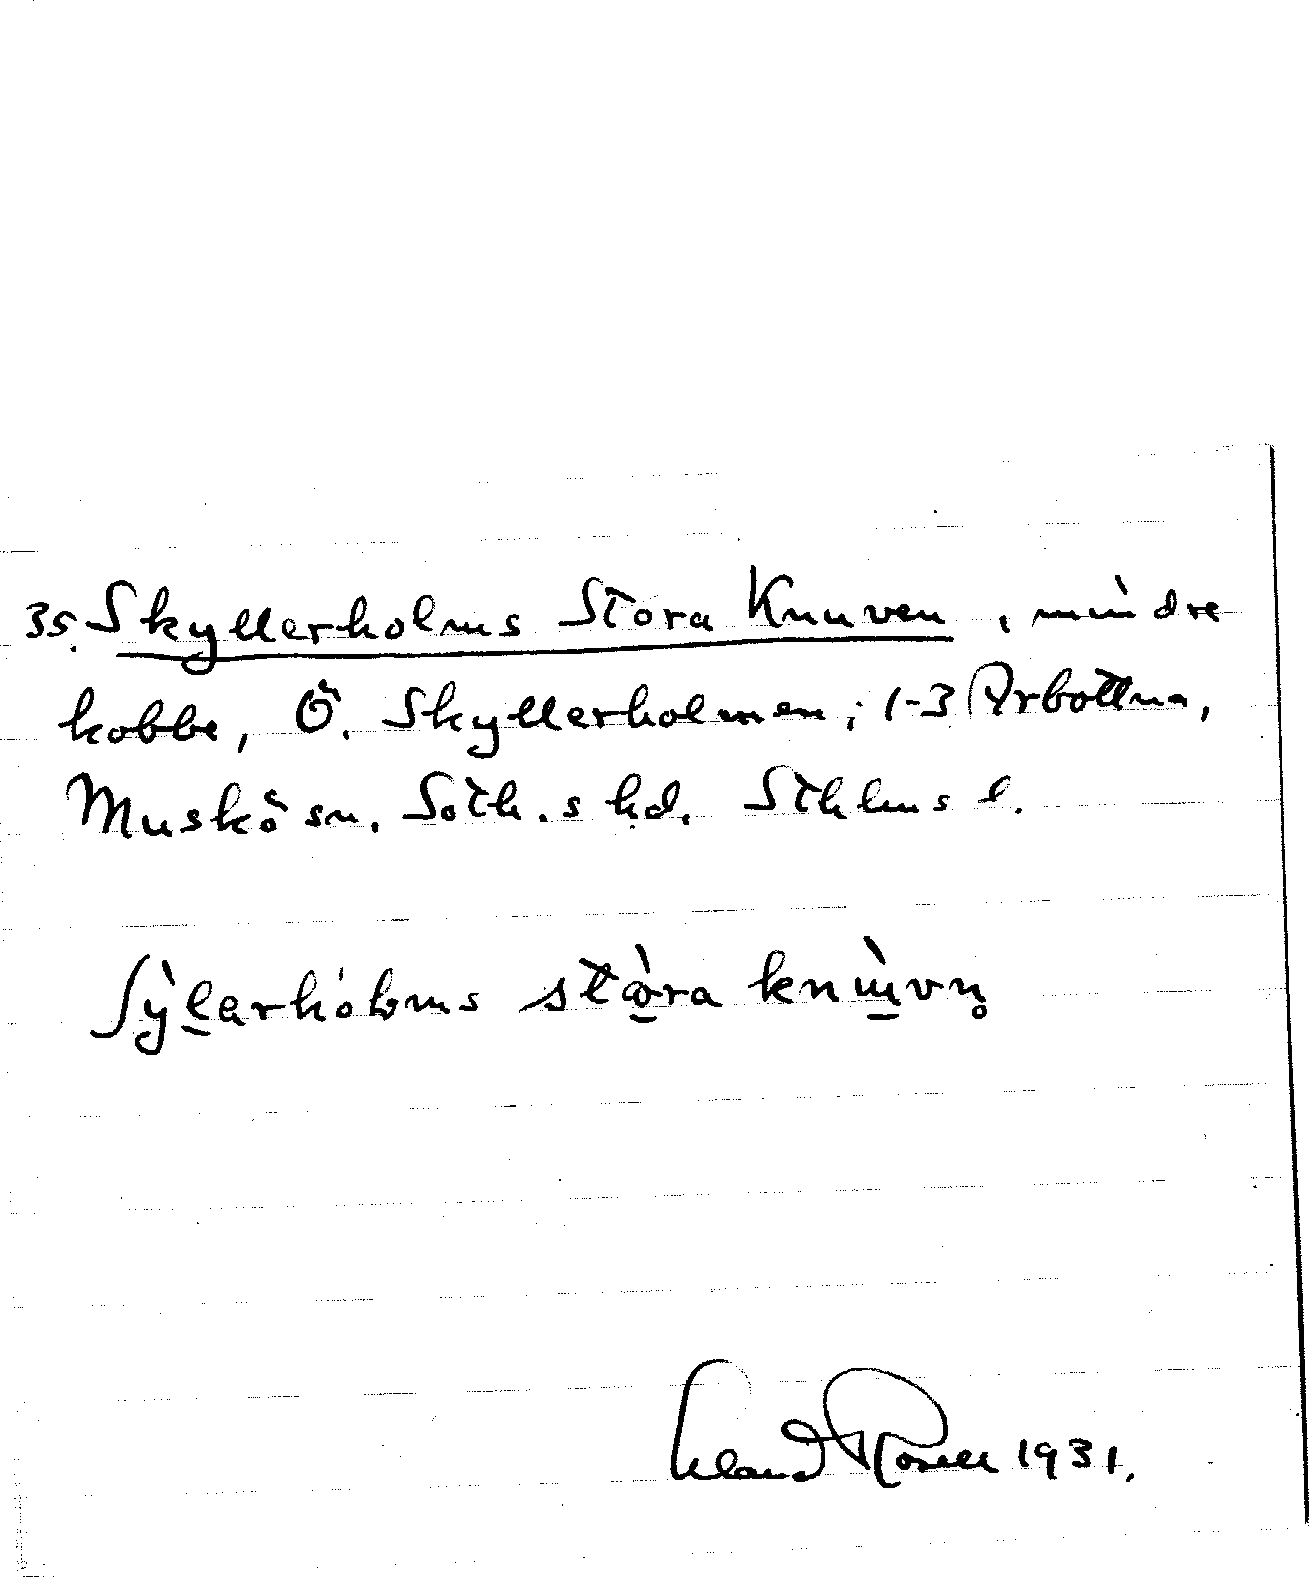 35. Skyllerholms Stora Knuven, mindre
kobbe, Ö. Skyllerholmen; 1-3 Arbottna,
Muskö sn. Soth.s hd. Sthlms l.
ʃy̌lerhólms stɷ̀ra knɯ̀vn̥
Roséll 1931.